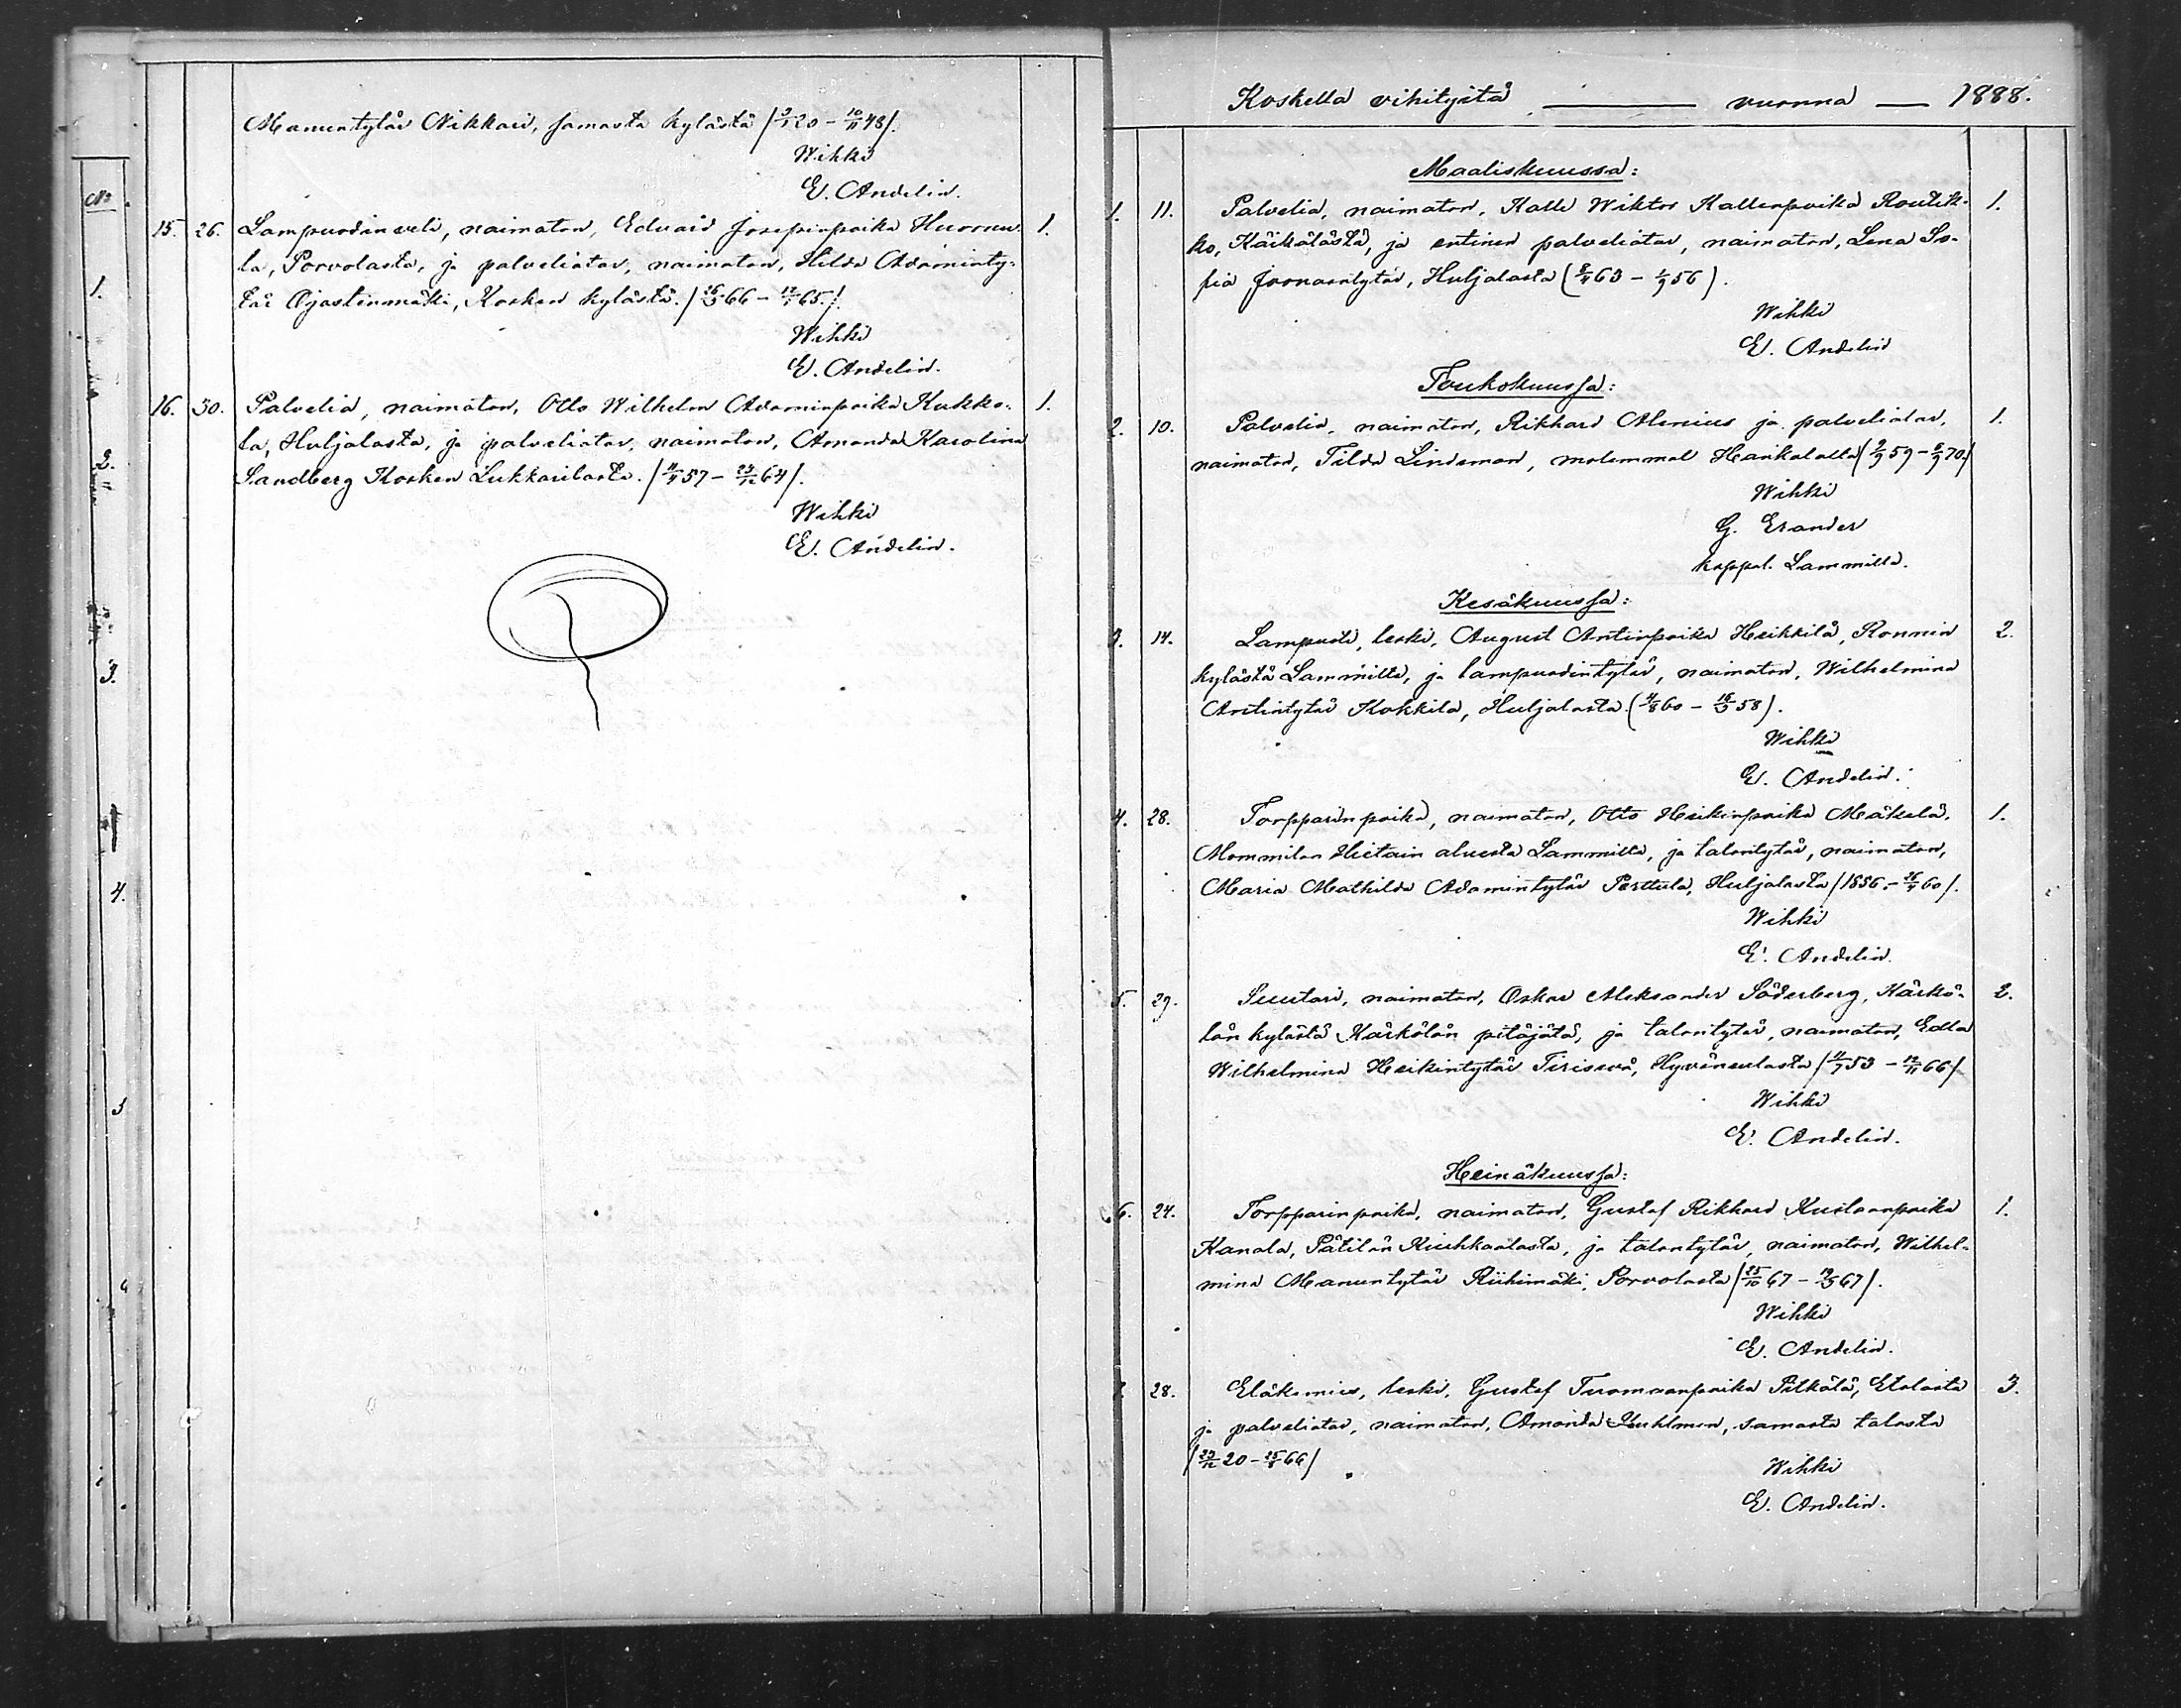 Manuntytär Nikkari, samasta kylästä /3/1 20 - 10/11 48/.
Wihki
E. Andelin.
15. 26. Lampuodin veli, naimaton, Eduard Josepinpoika Huornu- 1.
la, Porvolasta, ja palveliatar, naimaton, Hilda Adaminty-
tär Ojastenmäki, Kosken kylästä. /26/3 66 - 12/1 65./
Wihki
E. Andelin.
16. 30. Palvelia, naimaton, Otto Wilhelm Adaminpoika Kukko- 1.
la, Huljalasta, ja palveliatar, naimaton, Amanda Karolina
Sandberg Kosken Lukkarilasta. /11/4 57 - 24/12 64/.
Wihki
E. Andelin.
Koskella vihityitä vuonna 1888.
Maaliskuussa:
1. 11. Palvelia, naimaton, Kalle Wiktor Kallenpoika Routik- 1.
ko, Käikälästä, ja entinen palveliatar, naimaton, Lena So-
fia Joonaantytär, Huljalasta (8/4 63 - 1/9 56).
Wihki
E. Andelin
Toukokuussa:
2. 10. Palvelia, naimaton, Rikhard Alenius ja palveliatar, 1.
naimaton, Tilda Lindeman, molemmat Hankalalla /2/9 59 - 8/9 70./
Wihki
G. Erander
kappal. Lammilla.
Kesäkuussa:
3. 14. Lampuoti, leski, August Antinpoika Heikkilä, Ronnin 2.
kylästä Lammilla, ja lampuodintytär, naimaton, Wilhelmina
Antintytär Kokkila, Huljalasta. (4/8 60 - 16/3 58).
Wihki
E. Andelin.
4. 28. Torpparinpoika, naimaton, Otto Heikinpoika Mäkelä, 1.
Mommilan Hietain alueelta Lammilla, ja talontytär, naimaton,
Maria Mathilda Adamintytär Perttula, Huljalasta /1856. - 26/4 60/.
Wihki
E. Andelin.
5. 29. Suutari, naimaton, Oskar Aleksander Söderberg, Kärkö- 2.
län kylästä Kärkölän pitäjätä, ja talontytär, naimaton, Edla
Wilhelmina Heikintytär Tirisevä, Hyväneulasta /11/7 53 - 12/11 66/
Wihki
E. Andelin.
Heinäkuussa:
6. 24. Torpparinpoika, naimaton, Gustaf Rikhard Kustaanpoika 1.
Kanala, Pätilän Kiuhkaalasta, ja talontytär, naimaton, Wilhel-
mina Manuntytär Riihimäki, Porvolasta /25/10 67 - 19/3 67/.
Wihki
E. Andelin.
28. Eläkemies, leski, Gustaf Tuomaanpoika Pitkälä, Etolasta 3.
ja palveliatar, naimaton, Amanda Kuhlman, samasta talosta
/23/12 20 - 25/8 66/
Wihki
E. Andelin.